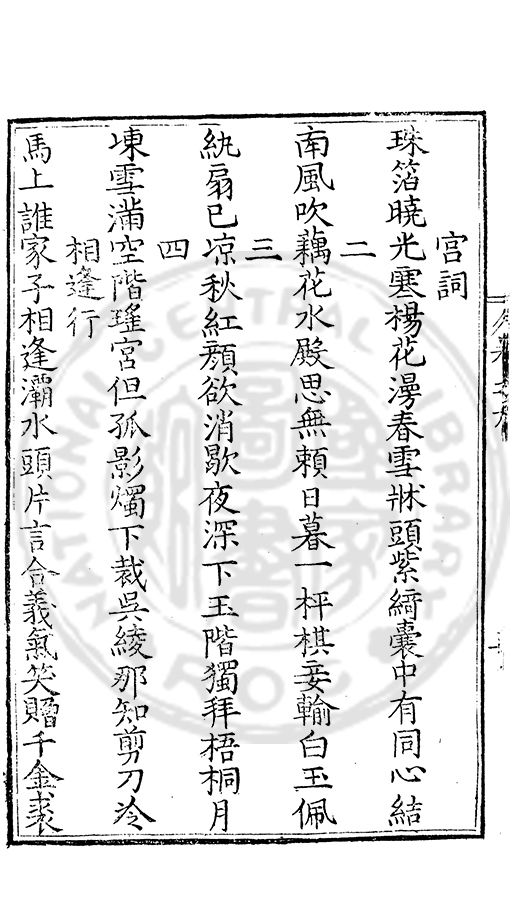 宮詞
珠箔曉光寒楊花漫春雪牀頭紫綺囊中有同心結
二
南風吹藕花水殿思無賴日暮一枰棋妾輸白玉佩
三
紈扇已凉秋紅顔欲消歇夜深下玉階獨拜梧桐月
四
凍雪滿空階瑤宮但孤影燭下裁吳綾那知剪刀冷
相逢行
馬上誰家子相逢灞水頭片言合義氣笑贈千金裘
NATIONAL CENTRAL LIBRARY